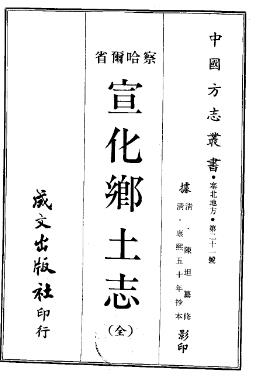 中國方志叢書·塞北地方·第二十一號
據清·陳坦纂修
清·康熙五十年抄本影印
察哈爾省
宣化鄉土志(全)
成文出版社印行